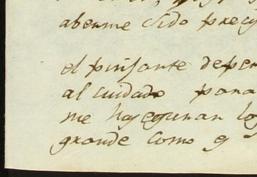 aberme sido preci
el pinsante depen
al cuidado para
me hasegunan lo
grande como q